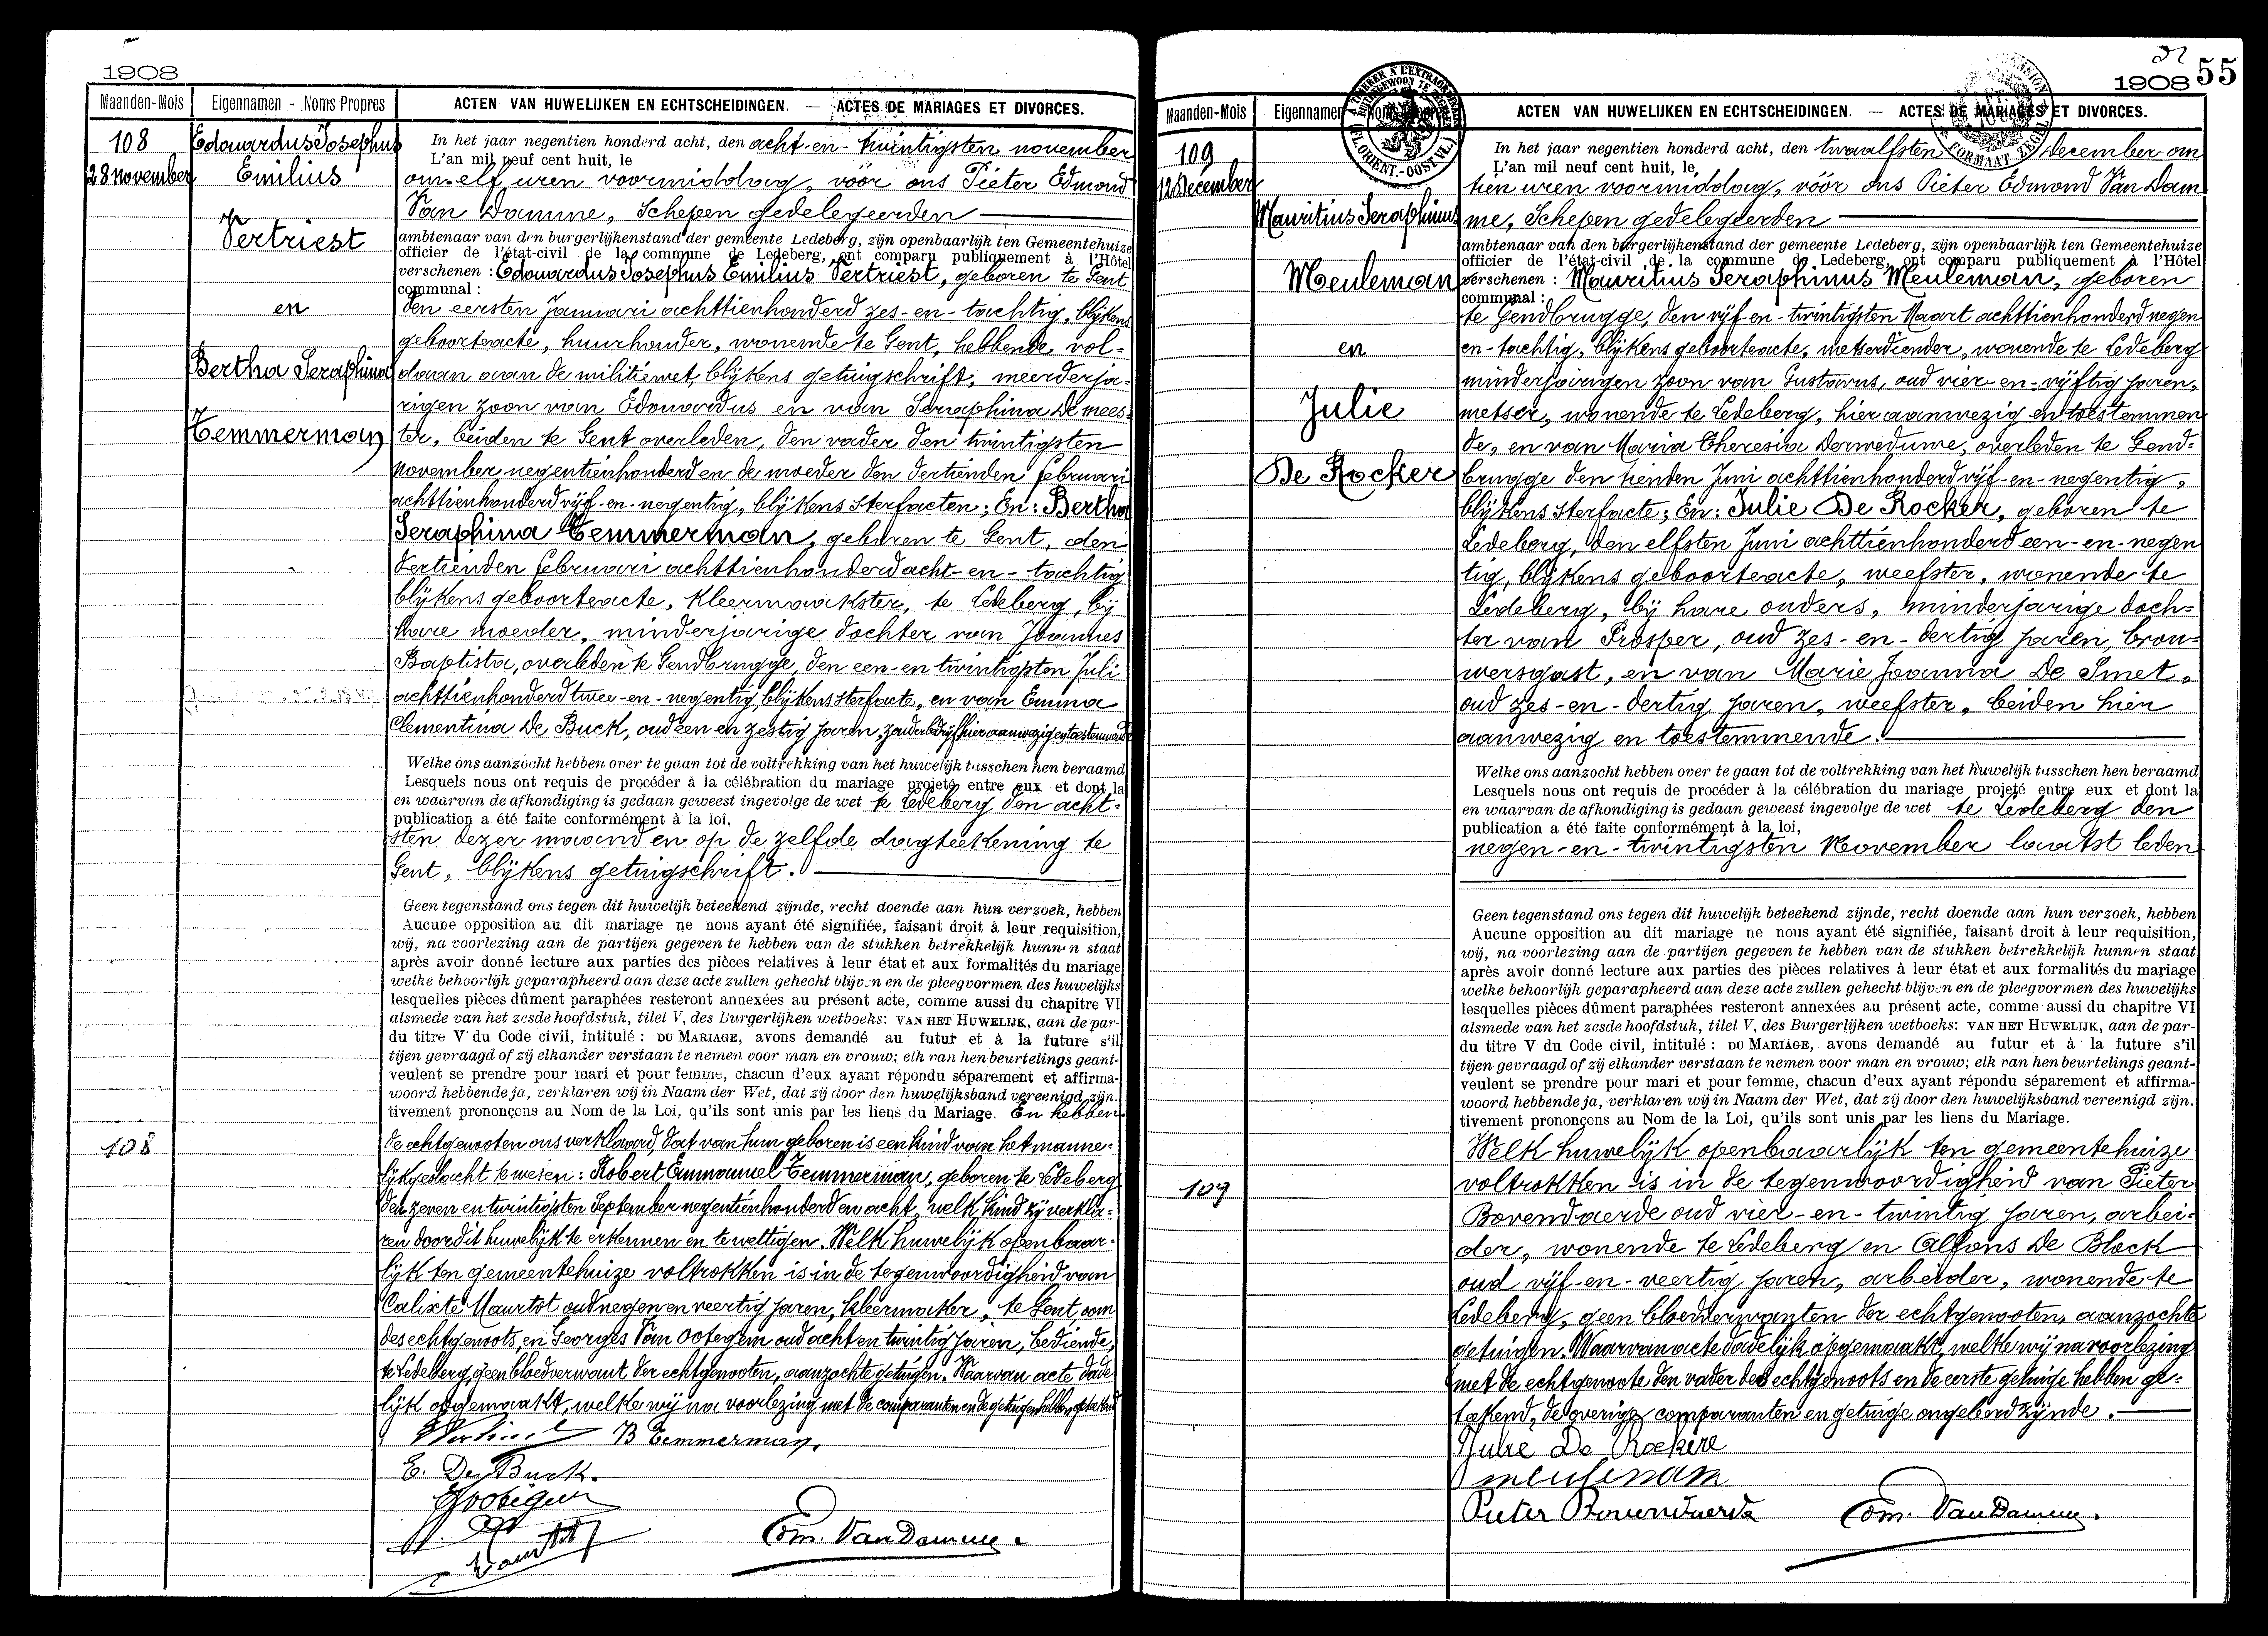 1908
Maanden-Mois Eigennamen - Noms Propres ACTEN VAN HUWELIJKEN EN ECHTSCHEIDINGEN. — ACTES DE MARIAGES ET DIVORCES.
108
28 november
Edouardus Josephus
Emilius
Vertriest
en
Bertha Seraphina
Temmerman
In het jaar negentien honderd acht, den acht-en-twintigsten november
L'an mil neuf cent huit, le
om elf uren voormiddag, vóór ons Pieter Edmond
Van Damme, Schepen gedelegeerden
ambtenaar van den burgerlijkenstand der gemeente Ledeberg, zijn openbaarlijk ten Gemeentehuize
officier de l'état-civil de la commune de Ledeberg, ont comparu publiquement à l'Hôtel
verschenen : Edouardus Josephus Emilius Vertriest, geboren te Gent
communal :
den eersten Januari achttienhonderd zes-en-tachtig, blijkens
geboorteacte, huurhouder, wonende te Gent, hebbende vol-
daan aan de militiewet, blijkens getuigschrift, meerderja-
rigen zoon van Edouardus en van Seraphina De mees-
ter, beiden te Gent overleden, den vader den twintigsten
november negentienhonderd en de moeder den dertienden februari
achttienhonderd vijf-en-negentig, blijkens sterfacten; En: Bertha
Seraphina Temmerman, geboren te Gent, den
dertienden februari achttienhonderd acht-en-tachtig
blijkens geboorteacte, kleermaakster, te Ledeberg, bij
hare moeder, minderjarige dochter van Joannes
Baptista, overleden te Gendbrugge, den een-en twintigsten Juli
achttienhonderd twee-en-negentig, blijkens sterfacte, en van Emma
Clementina De Buck, oud een en zestig jaren, zonder bedrijf hier aanwezig en toestemmende
Welke ons aanzocht hebben over te gaan tot de voltrekking van het huwelijk tusschen hen beraamd
Lesquels nous ont requis de procéder à la célébration du mariage projeté entre eux et dont la
en waarvan de afkondiging is gedaan geweest ingevolge de wet te Ledeberg den acht-
publication a été faite conformément à la loi,
sten dezer maand en op de zelfde dagteekening te
Gent, blijkens getuigschrift.
Geen tegenstand ons tegen dit huwelijk beteekend zijnde, recht doende aan hun verzoek, hebben
Aucune opposition au dit mariage ne nous ayant été signifiée, faisant droit à leur requisition,
wij, na voorlezing aan de partijen gegeven te hebben van de stukken betrekkelijk hunnen staat
après avoir donné lecture aux parties des pièces relatives à leur état et aux formalités du mariage
welke behoorlijk geparapheerd aan deze acte zullen gehecht blijven en de pleegvormen des huwelijks
lesquelles pièces dûment paraphées resteront annexées au présent acte, comme aussi du chapitre VI
alsmede van het zesde hoofdstuk, titel V, des Burgerlijken wetboeks: VAN HET HUWELIJK, aan de par-
du titre V du Code civil, intitulé : DU MARIAGE, avons demandé au futur et à la future s'il
tijen gevraagd of zij elkander verstaan te nemen voor man en vrouw; elk van hen beurtelings geant-
veulent se prendre pour mari et pour femme, chacun d'eux ayant répondu séparement et affirma-
woord hebbende ja, verklaren wij in Naam der Wet, dat zij door den huwelijksband vereenigd zijn.
tivement prononçons au Nom de la Loi, qu'ils sont unis par les liens du Mariage. En hebben
108
de echtgenooten ons verklaard, dat van hun geboren is een kind van het manne-
lijk geslacht te weten: Robert Emmanuel Temmerman, geboren te Ledeberg
den zeven en twintigsten September negentienhonderd en acht, welk kind zij verkla-
ren door dit huwelijk te erkennen en te wettigen. Welk huwelijk openbaar-
lijk ten gemeentehuize voltrokken is in de tegenwoordigheid van
Calixte Maurtot oud negen en veertig jaren, kleermaker, te Gent oom
des echtgenoots, en Georges Van Ootegem oud acht en twintig jaren, bediende,
te Ledeberg, geen bloedverwant der echtgenooten, aanzochte getuigen. Waarvan acte dade
lijk opgemaakt, welke wij na voorlezing met de comparanten en de getuigen hebben geteekend
B Temmerman.
E. De Buck.
Edm. Van Damme.
52
1908 55
Maanden-Mois Eigennamen ACTEN VAN HUWELIJKEN EN ECHTSCHEIDINGEN. — ACTES DE MARIAGES ET DIVORCES.
109
12 December
Mauritius Seraphinus
Meuleman
en
Julie
De Rocker
In het jaar negentien honderd acht, den twaalfsten December om
L'an mil neuf cent huit, le
tien uren voormiddag, vóór ons Pieter Edmond Van Dam
me, Schepen gedelegeerden
ambtenaar van den burgerlijkenstand der gemeente Ledeberg, zijn openbaarlijk ten Gemeentehuize
officier de l'état-civil de la commune de Ledeberg, ont comparu publiquement à l'Hôtel
verschenen : Mauritius Seraphinus Meuleman, geboren
communal :
te Gendbrugge, den vijf-en-twintigsten Maart achttienhonderd negen
en-tachtig, blijkens geboorteacte, metserdiender, wonende te Ledeberg
minderjarigen zoon van Gustavus, oud vier-en-vijftig jaren,
metser, wonende te Ledeberg, hier aanwezig en toestemmen
de, en van Maria Theresia Dermedume, overleden te Gend-
brugge den tienden Juni achttienhonderd vijf-en-negentig,
blijkens sterfacte; En: Julie De Rocker, geboren te
Ledeberg, den elfsten Juni achttienhonderd een-en-negen
tig, blijkens geboorteacte, weefster, wonende te
Ledeberg, bij hare ouders, minderjarige doch-
ter van Prosper, oud zes-en-dertig jaren, brou-
wersgast, en van Marie Joanna De Smet,
oud zes-en-dertig jaren, weefster, beiden hier
aanwezig en toestemmende.
Welke ons aanzocht hebben over te gaan tot de voltrekking van het huwelijk tusschen hen beraamd
Lesquels nous ont requis de procéder à la célébration du mariage projeté entre eux et dont la
en waarvan de afkondiging is gedaan geweest ingevolge de wet te Ledeberg den
publication a été faite conformément à la loi,
negen-en-twintigsten November laatst leden
Geen tegenstand ons tegen dit huwelijk beteekend zijnde, recht doende aan hun verzoek, hebben
Aucune opposition au dit mariage ne nous ayant été signifiée, faisant droit à leur requisition,
wij, na voorlezing aan de partijen gegeven te hebben van de stukken betrekkelijk hunnen staat
après avoir donné lecture aux parties des pièces relatives à leur état et aux formalités du mariage
welke behoorlijk geparapheerd aan deze acte zullen gehecht blijven en de pleegvormen des huwelijks
lesquelles pièces dûment paraphées resteront annexées au présent acte, comme aussi du chapitre VI
alsmede van het zesde hoofdstuk, titel V, des Burgerlijken wetboeks: VAN HET HUWELIJK, aan de par-
du titre V du Code civil, intitulé : DU MARIAGE, avons demandé au futur et à la future s'il
tijen gevraagd of zij elkander verstaan te nemen voor man en vrouw; elk van hen beurtelings geant-
veulent se prendre pour mari et pour femme, chacun d'eux ayant répondu séparement et affirma-
woord hebbende ja, verklaren wij in Naam der Wet, dat zij door den huwelijksband vereenigd zijn.
tivement prononçons au Nom de la Loi, qu'ils sont unis par les liens du Mariage.
109
Welk huwelijk openbaarlijk ten gemeentehuize
voltrokken is in de tegenwoordigheid van Pieter
Bovendaerde oud vier-en-twintig jaren, arbei-
der, wonende te Ledeberg en Alfons De Block
oud vijf-en-veertig jaren, arbeider, wonende te
Ledeberg, geen bloedverwanten der echtgenooten, aanzochte
getuigen. Waarvan acte dadelijk opgemaakt, welke wij na voorlezing
met de echtgenoote den vader des echtgenoots en de eerste getuige hebben ge-
teekend, de overige comparanten en getuige ongeleerd zijnde.
Julie De Rockere
meulenam
Pieter Bovendaerde
Edm. Van Damme.